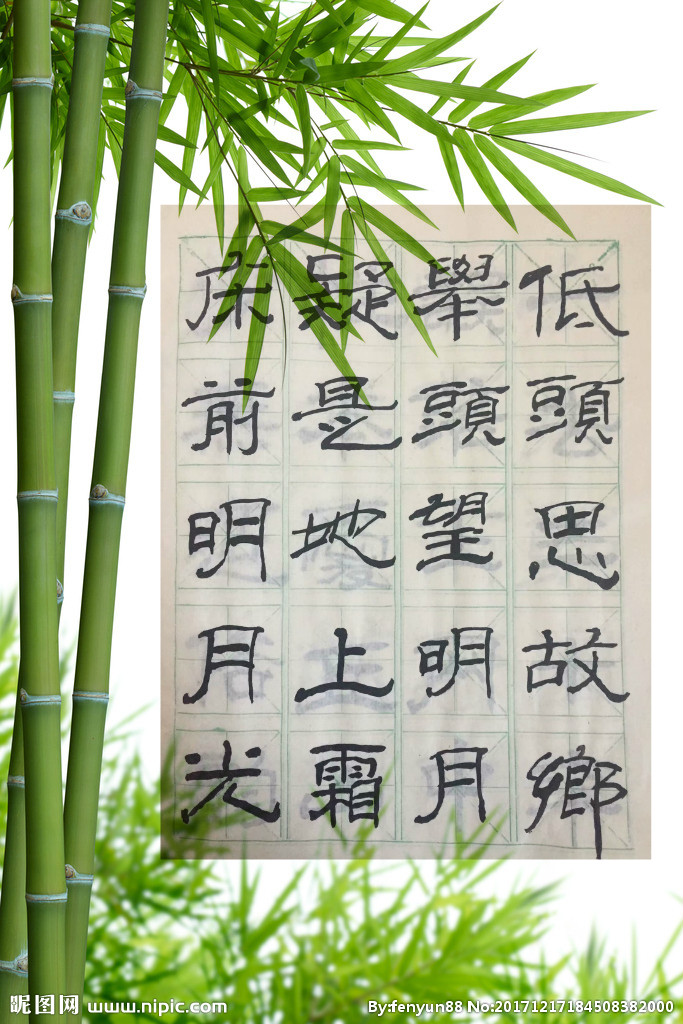 床前明月光
疑是地上霜
舉頭望明月
低頭思故鄉
昵图网 www.nipic.com
By:fenyun88 No:20171217184508382000